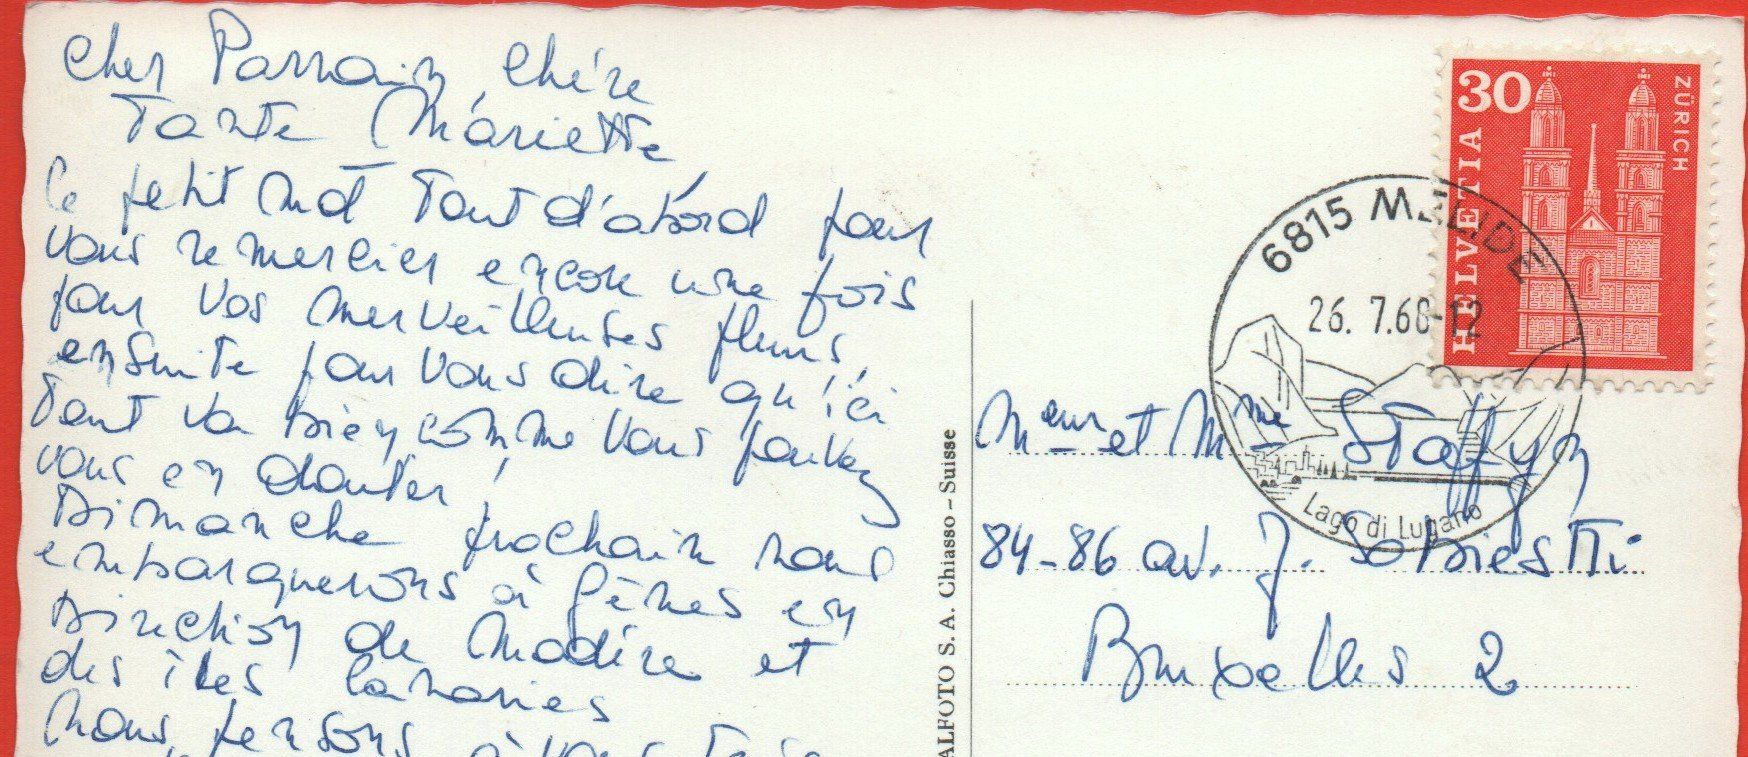 Cher Parrain, Chère
Tante Mariette,
Ce petit mot tout d'abord pour
vous remercier encore une fois
pour vos merveilleuses fleurs,
ensuite pour vous dire qu'ici
tout va bien comme vous pouvez
vous en douter!
Dimanche prochain nous
embarquerons à Gênes en
direction de Madère et
des îles Canaries
Nous pensons à vous
ALFOTO S. A. Chiasso - Suisse
30
HELVETIA
ZÜRICH
6815 MELIDE
26. 7.68-12
Lago di Lugano
Meur et Mme
84-86 av. J. Sobieski
Bruxelles 2